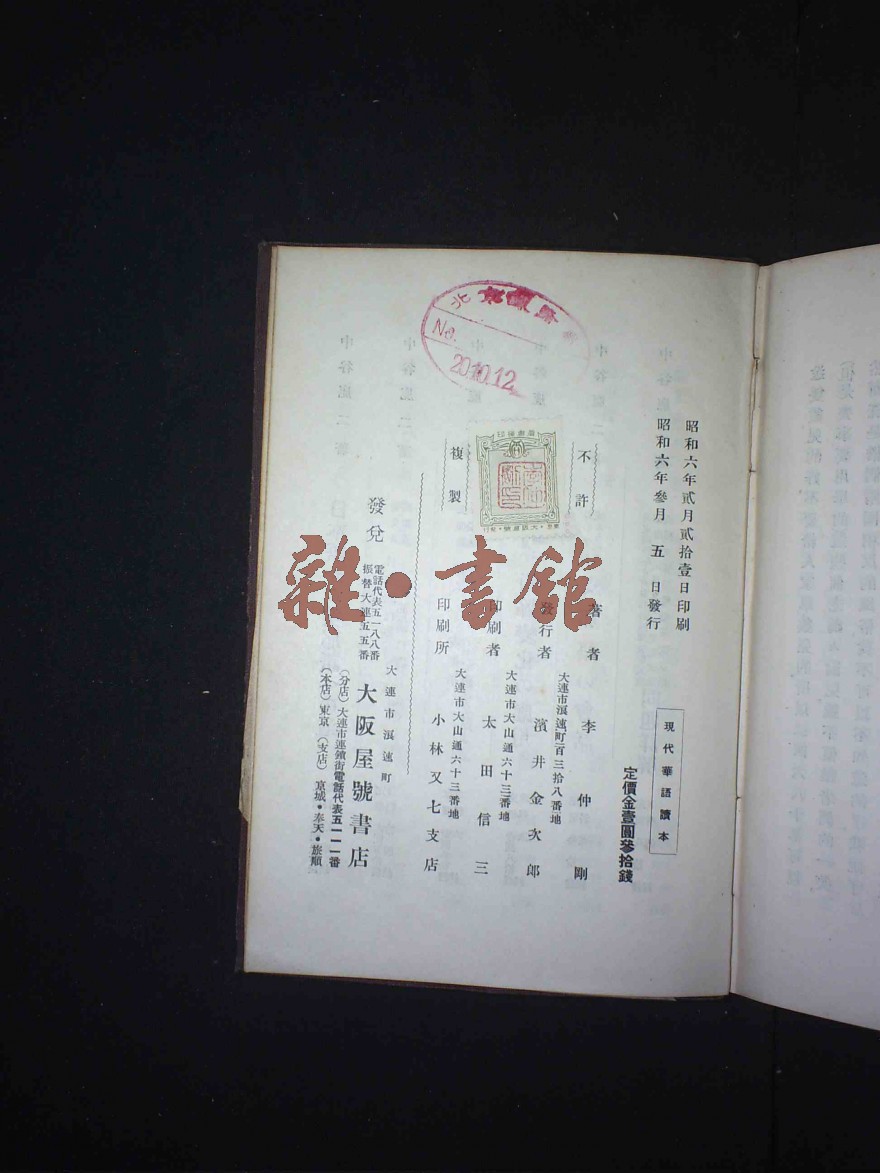 昭和六年貳月貳拾壹日印刷
昭和六年參月五日發行
現代華語讀本
定價金壹圓參拾錢
不許
複製
著者 李仲剛
大連市浪速町二百三拾八番地
發行者 濱井金次郎
大連市大山通六十三番地
印刷者 太田信三
大連市大山通六十三番地
印刷所 小林又七支店
發兌
大連市浪速町
大阪屋號書店
電話代表五一八八番
振替大連五五番
(分店)大連市連鎖街電話代表五一一一番
(本店)東京 (支店)京城・奉天・旅順
北京
No.
20.10.12
雜・書館